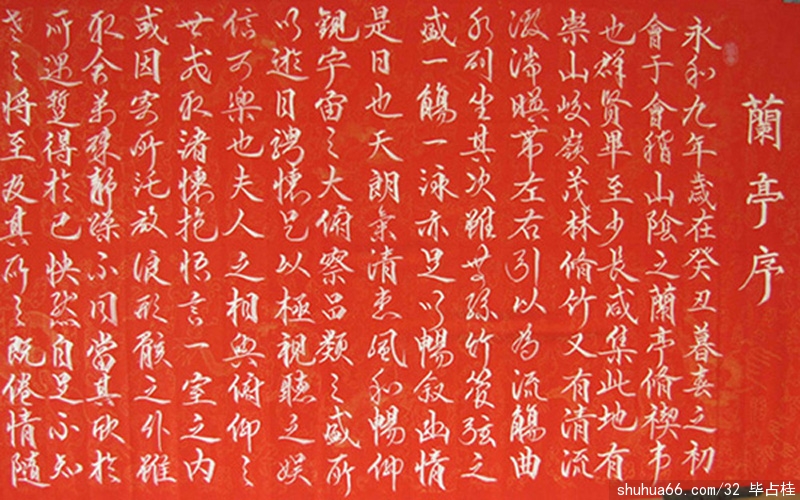 蘭亭序
永和九年歲在癸丑暮春之初
會于會稽山陰之蘭亭脩禊事
也群賢畢至少長咸集此地有
崇山峻嶺茂林脩竹又有清流
激湍暎帶左右引以為流觴曲
水列坐其次雖無絲竹管弦之
盛一觴一詠亦足以暢敘幽情
是日也天朗氣清惠風和暢仰
觀宇宙之大俯察品類之盛所
以遊目騁懷足以極視聽之娛
信可樂也夫人之相與俯仰之
世或取諸懷抱悟言一室之內
或因寄所託放浪形骸之外雖
取舍萬殊靜躁不同當其欣於
所遇蹔得於己快然自足不知
老之將至及其所之既倦情隨
shuhua66.com/32 毕占桂